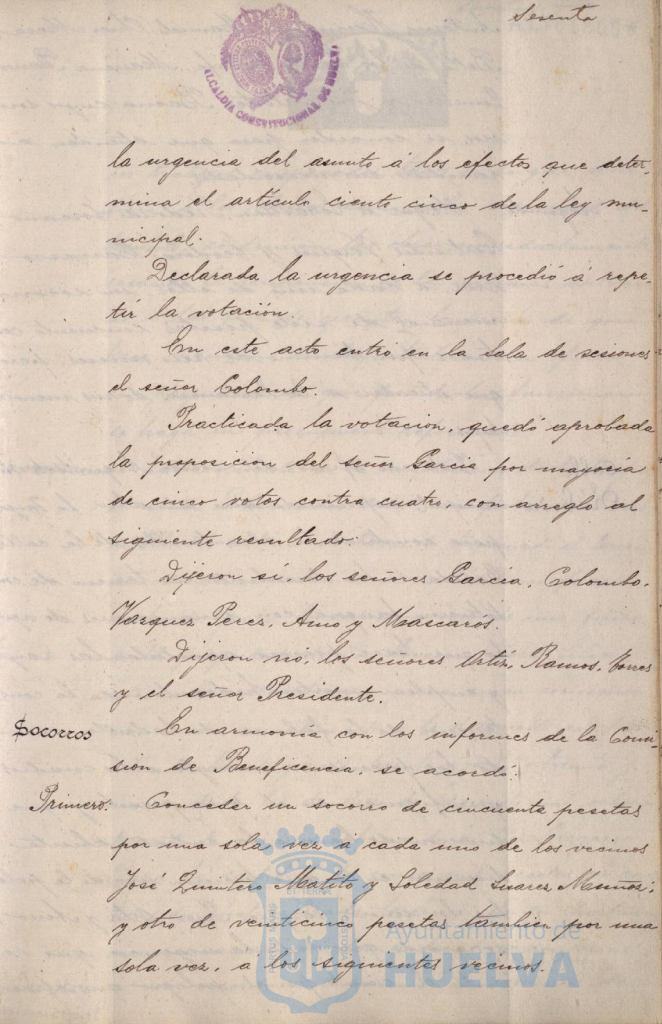 Sesenta
ALCALDIA CONSTITUCIONAL DE HUELVA
la urgencia del asunto á los efectos que deter-
mina el artículo ciento cinco de la ley mu-
nicipal.
Declarada la urgencia se procedió á repe-
tir la votación.
En este acto entró en la Sala de sesiones
el señor Colombo.
Practicada la votacion, quedó aprobada
la proposicion del señor Garcia por mayoria
de cinco votos contra cuatro, con arreglo al
siguiente resultado:
Dijeron sí, los señores Garcia, Colombo,
Vazquez Perez, Amo y Mascarós.
Dijeron nó, los señores Ortíz, Ramos, Torres
y el señor Presidente.
Socorros
En armonía con los informes de la Comi-
sion de Beneficencia, se acordó:
Primero:
Conceder un socorro de cincuenta pesetas
por una sola vez á cada uno de los vecinos
José Quintero Matito y Soledad Suarez Muñoz;
y otro de veinticinco pesetas tambien por una
sola vez, á los siguientes vecinos.
Ayuntamiento de
HUELVA